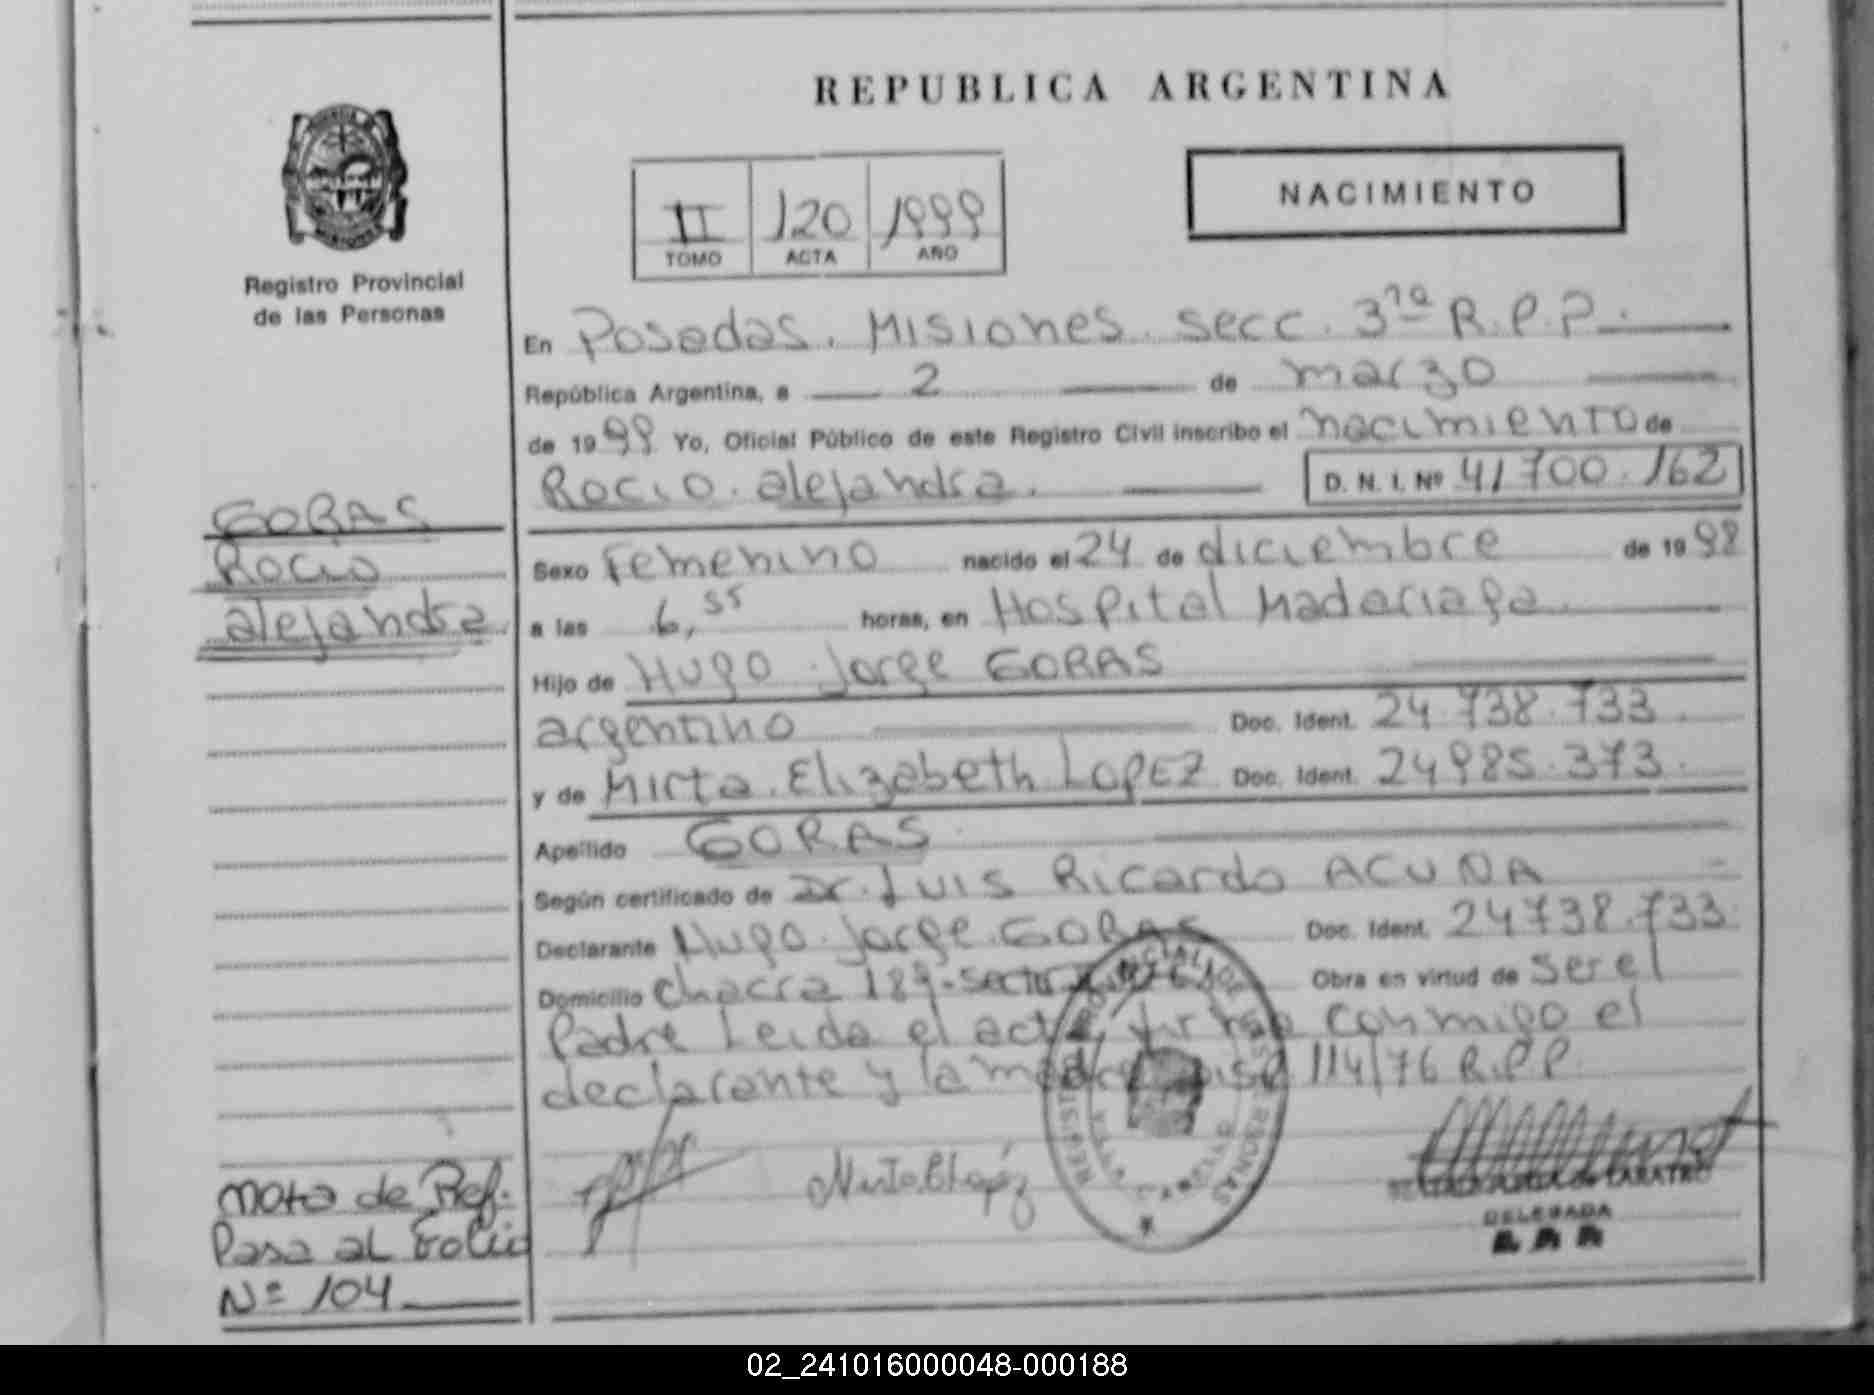 REPUBLICA ARGENTINA
NACIMIENTO
II 120 1999
TOMO ACTA AÑO
Registro Provincial
de las Personas
En Posadas. Misiones. secc. 3ra R.P.P.
República Argentina, a 2 de marzo
de 1999 Yo, Oficial Público de este Registro Civil inscribo el nacimiento de
Rocio. alejandra. D. N. I. Nº 41700.162
GORAS
Rocio
alejandra
Sexo Femenino nacido el 24 de diciembre de 1998
a las 6,55 horas, en Hospital Madariaga.
Hijo de Hugo Jorge GORAS
argentino Doc. Ident. 24.738.733.
y de Mirta. Elizabeth LOPEZ Doc. Ident. 24985.373.
Apellido GORAS
Según certificado de Dr. Luis Ricardo ACUÑA
Declarante Hugo. Jorge. GORAS Doc. Ident. 24738.733.
Domicilio Chacra 189. Obra en virtud de ser el
Padre Leida el acta, firman conmigo el
declarante y la madre Disp 114/76 R.P.P.
Nota de Ref.
Pasa al Folio
Nº 104
DELEGADA
02_241016000048-000188